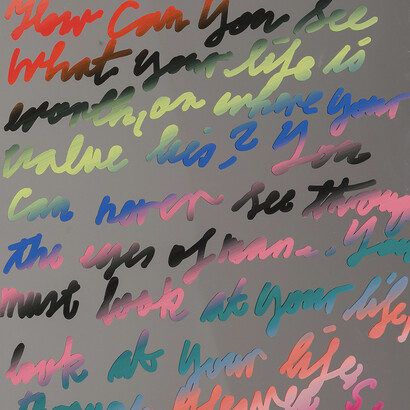 How Can You See
What your life is
worth, or where your
value lies,? You
Can never see throug
the eyes of man.. You
must look at your life,
look at your life,
through